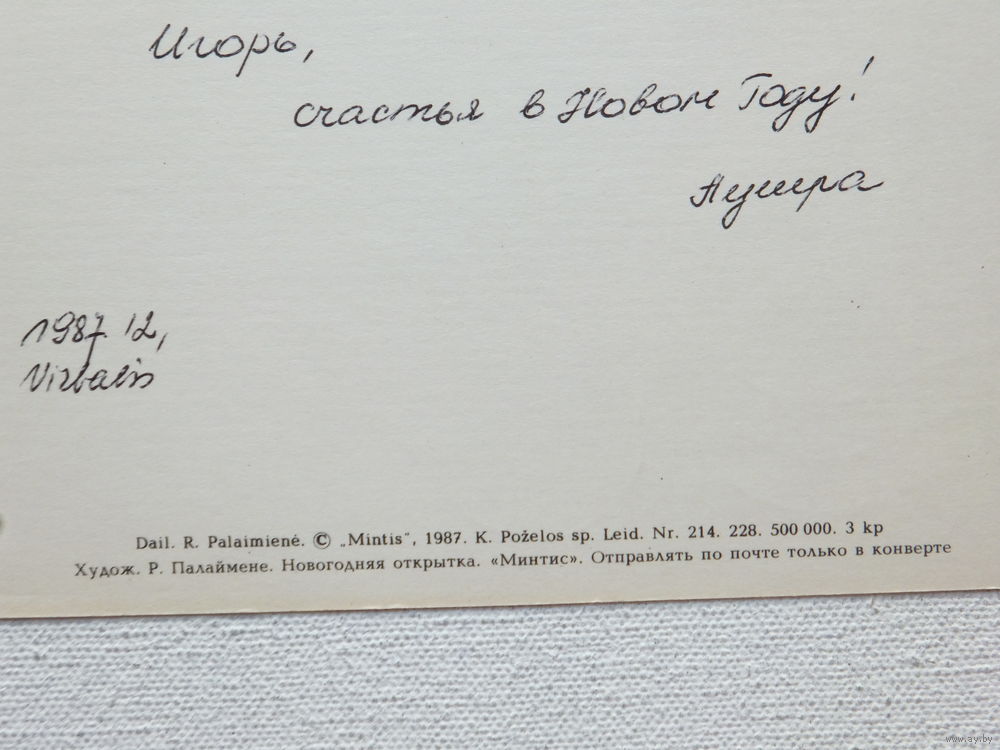 Игорь,
счастья в Новом Году!
Аушра
1987.12,
Virbalis
Dail. R. Palaimienė. © „Mintis", 1987. K. Poželos sp. Leid. Nr. 214. 228. 500 000. 3 kp
Худож. Р. Палаймене. Новогодняя открытка. «Минтис». Отправлять по почте только в конверте
www.ay.by